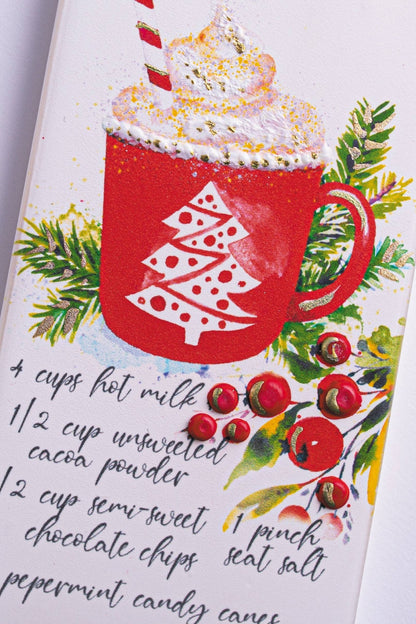 4 cups hot milk
1/2 cup unsweeted
cacoa powder
1/2 cup semi-sweet
chocolate chips
1 pinch
seat salt
pepermint candy canes